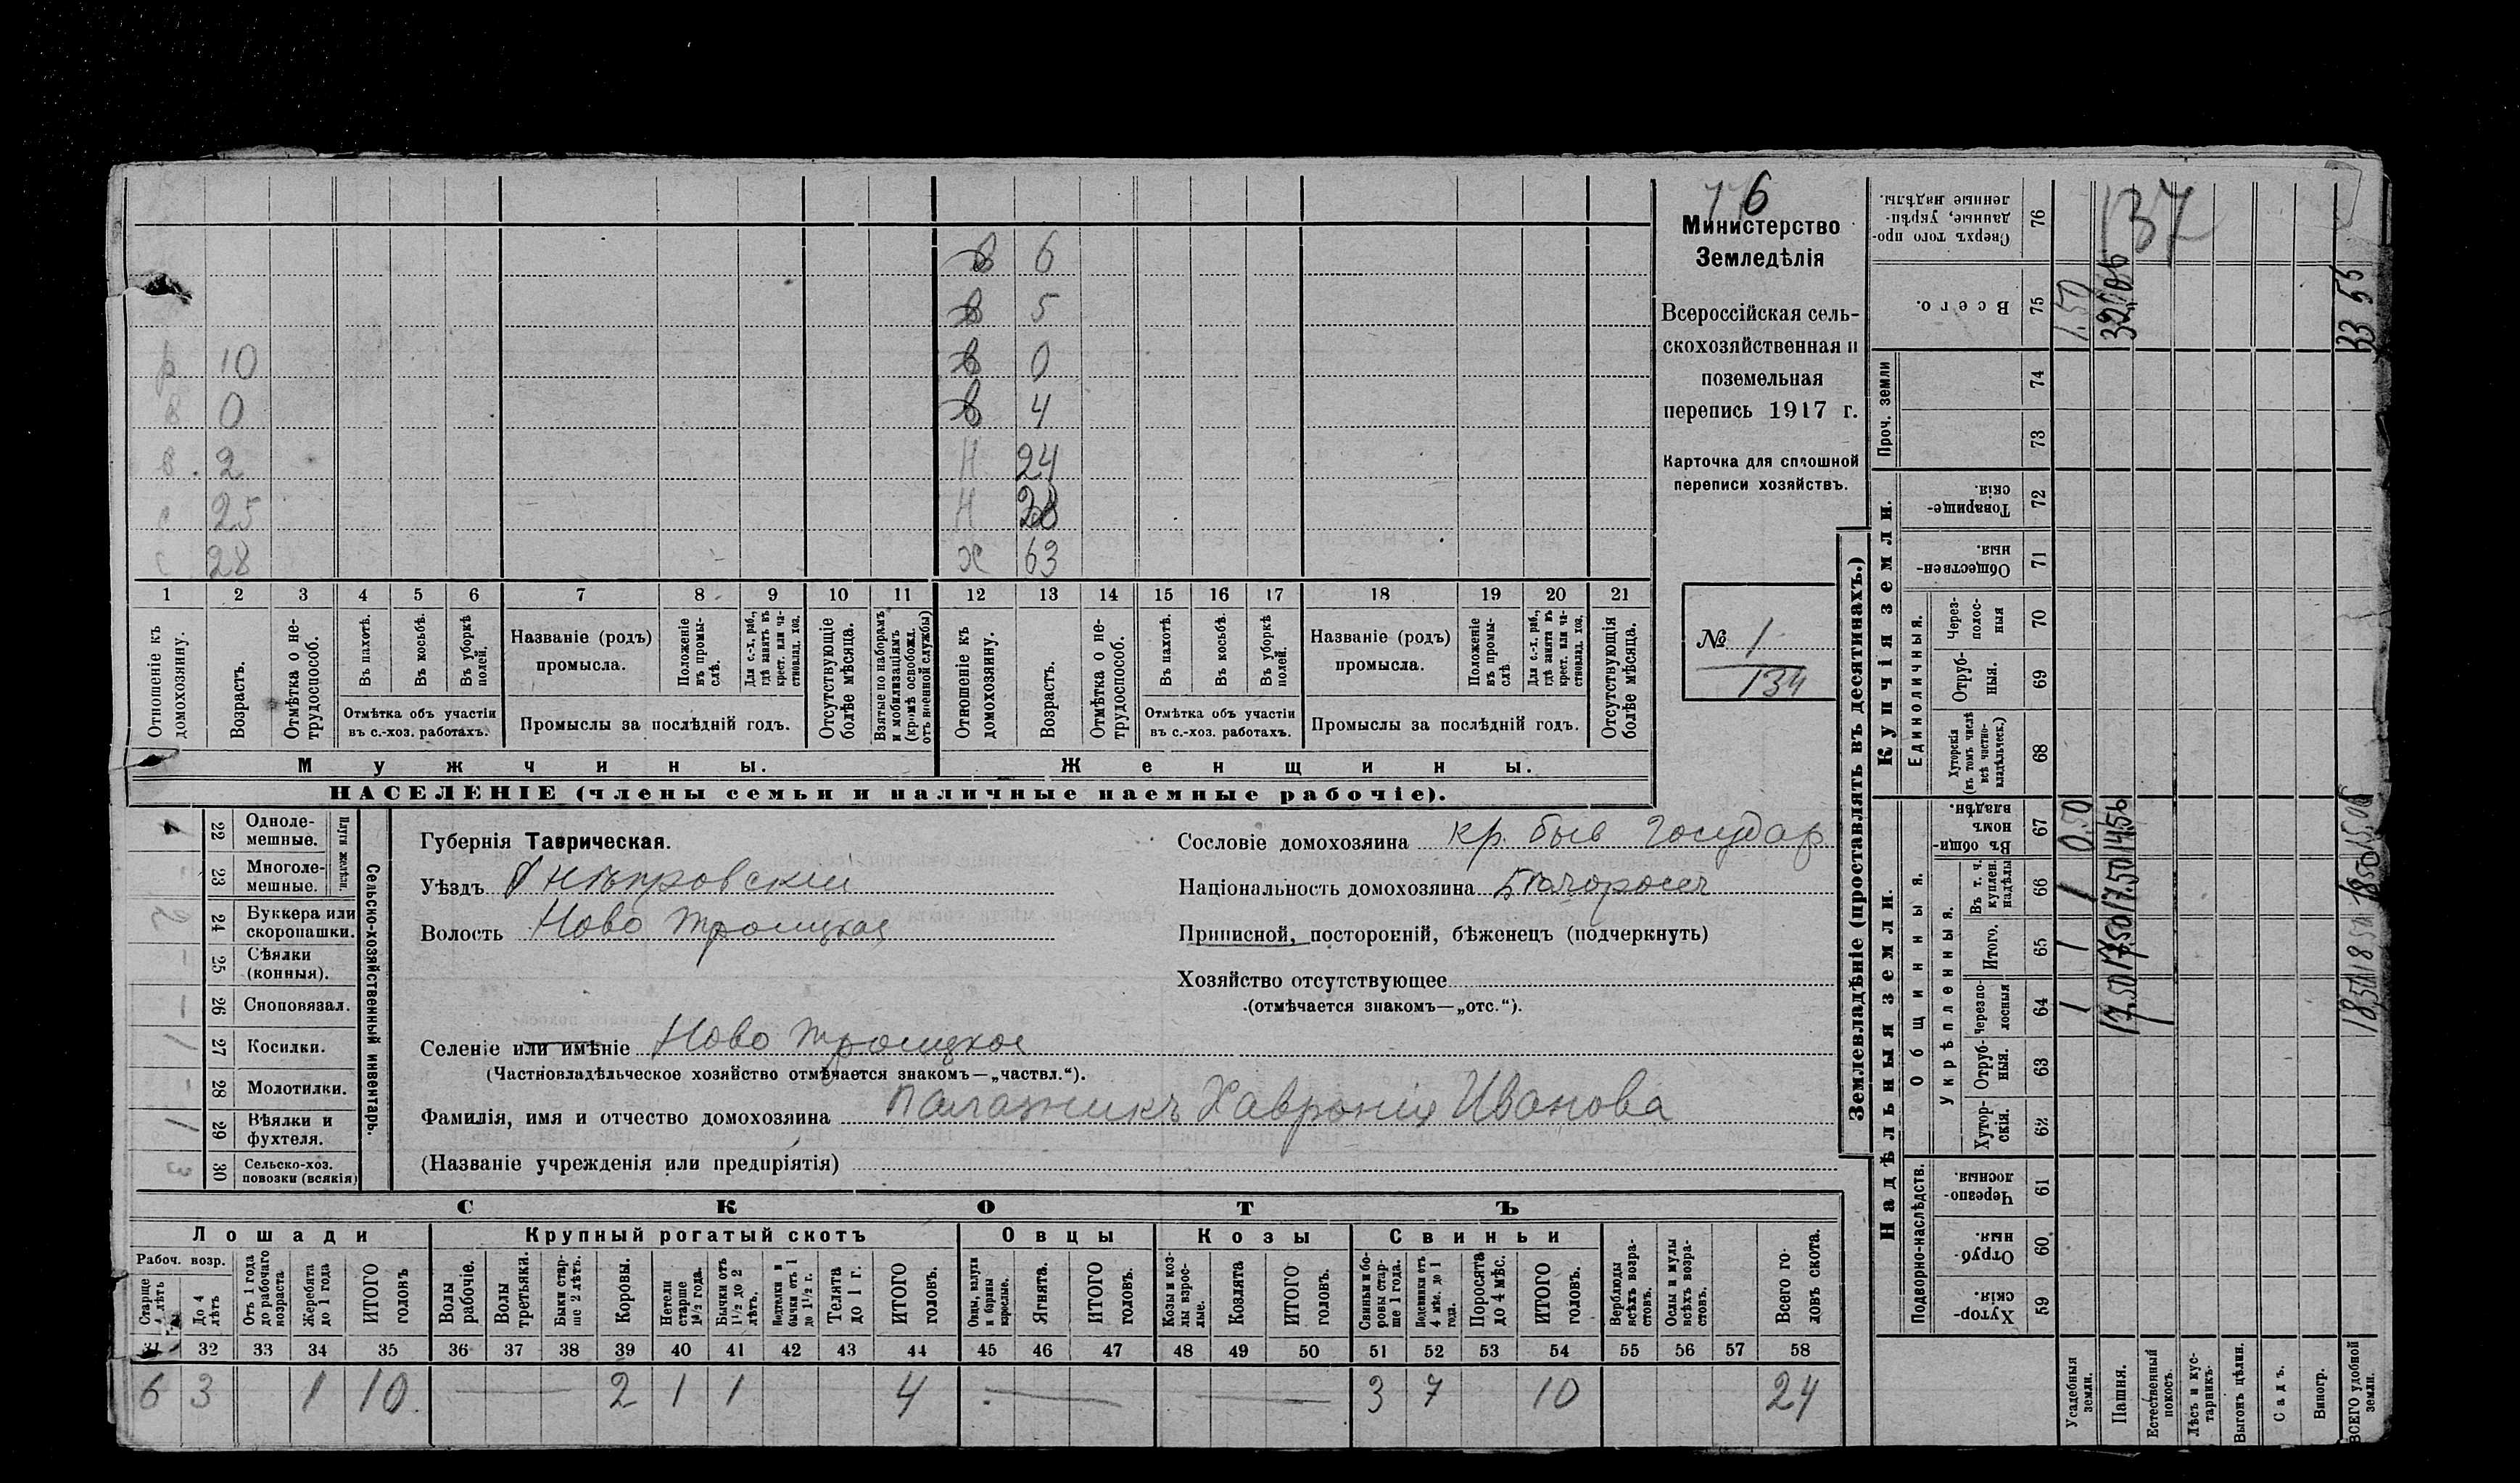 76
Министерство
Земледѣлія
Всероссійская сель-
скохозяйственная и
поземельная
перепись 1917 г.
Карточка для сплошной
переписи хозяйствъ.
№ 1
134
в 6
в 5
р 10 в 0
в 0 в 4
в. 2 н 24
с 25 н
с 28 х 63
1 2 3 4 5 6 7 8 9 10 11 12 13 14 15 16 17 18 19 20 21
Отношеніе къ домохозяину.
Возрастъ.
Отмѣтка о не-трудоспособ.
Въ пахотѣ.
Въ косьбѣ.
Въ уборкѣ полей.
Отмѣтка объ участіи
въ с.-хоз. работахъ.
Названіе (родъ)
промысла.
Положеніе въ промы-слѣ.
Для с.-х. раб., гдѣ занятъ въ крест. или ча-стновлад. хоз.
Промыслы за послѣдній годъ.
Отсутствующіе болѣе мѣсяца.
Взятые по наборамъ и мобилизаціямъ (кромѣ освобожд. отъ военной службы)
Отношеніе къ домохозяину.
Возрастъ.
Отмѣтка о не-трудоспособ.
Въ пахотѣ.
Въ косьбѣ.
Въ уборкѣ полей.
Отмѣтка объ участіи
въ с.-хоз. работахъ.
Названіе (родъ)
промысла.
Положеніе въ промы-слѣ.
Для с.-х. раб., гдѣ занята въ крест. или ча-стновлад. хоз.
Промыслы за послѣдній годъ.
Отсутствующія болѣе мѣсяца.
Мужчины. Женщины.
НАСЕЛЕНІЕ (члены семьи и наличные наемные рабочіе).
Сельско-хозяйственный инвентарь.
Плуги желѣзн.
22 Одноле-мешные.
23 Многоле-мешные.
24 Буккера или скоропашки.
25 Сѣялки (конныя).
26 Сноповязал.
1 27 Косилки.
28 Молотилки.
1 29 Вѣялки и фухтеля.
3 30 Сельско-хоз. повозки (всякія)
Губернія Таврическая.
Уѣздъ Днѣпровскій
Волость Ново Троицкая
Селеніе или имѣніе Ново Троицкое
(Частновладѣльческое хозяйство отмѣчается знакомъ—„частвл.“).
Фамилія, имя и отчество домохозяина Палажникъ Хавронія Иванова
(Названіе учрежденія или предпріятія)
Сословіе домохозяина кр. быв государ
Національность домохозяина
Приписной, посторонній, бѣженецъ (подчеркнуть)
Хозяйство отсутствующее
(отмѣчается знакомъ—„отс.“).
СКОТЪ
Лошади Крупный рогатый скотъ Овцы Козы Свиньи
Рабоч. возр.
Старше 4 лѣтъ
До 4 лѣтъ
Отъ 1 года до рабочаго возраста
Жеребята до 1 года
ИТОГО головъ
Волы рабочіе.
Волы третьяки.
Быки стар-ше 2 лѣтъ.
Коровы.
Нетели старше 1½ года.
Бычки отъ 1½ до 2 лѣтъ.
Подтелки и бычки отъ 1 до 1½ г.
Телята до 1 г.
ИТОГО головъ.
Овцы, валухи и бараны взрослые.
Ягнята.
ИТОГО головъ.
Козы и коз-лы взрос-лые.
Козлята
ИТОГО головъ.
Свиньи и бо-ровы стар-ше 1 года.
Подсвинки отъ 4 мѣс. до 1 года.
Поросята до 4 мѣс.
ИТОГО головъ.
Верблюды всѣхъ возра-стовъ.
Ослы и мулы всѣхъ возра-стовъ.
Всего го-ловъ скота.
31 32 33 34 35 36 37 38 39 40 41 42 43 44 45 46 47 48 49 50 51 52 53 54 55 56 57 58
6 3 1 10 2 1 1 4 3 7 10 24
Землевладѣніе (проставлять въ десятинахъ.)
Надѣльныя земли. Купчія земли. Проч. земли
Подворно-наслѣдств.
Общинныя.
Укрѣпленныя.
Единоличныя.
Хутор-скія. 59
Отруб-ныя. 60
Черезпо-лосныя 61
Хутор-скія. 62
Отруб-ныя. 63
Черезпо-лосныя 64
Итого. 65
Въ т. ч. куплен. надѣлы 66
Въ общин-номъ владѣн. 67
Хуторскія (въ томъ числѣ всѣ частно-владѣльческ.) 68
Отруб-ныя. 69
Через-полос-ныя 70
Обществен-ныя. 71
Товарище-скія. 72
73
74
Всего. 75
Сверхъ того про-данные, укрѣп-ленные надѣлы. 76
Усадебныя земли. 1 1 1 0,50 1.50
Пашня. 17,50 17,50 17.50 14,56
Естественный покосъ.
Лѣсъ и кус-тарникъ.
Выгонъ цѣлин.
Садъ.
Виногр.
ВСЕГО удобной земли. 18,50 18,50 18,50 33 55
137